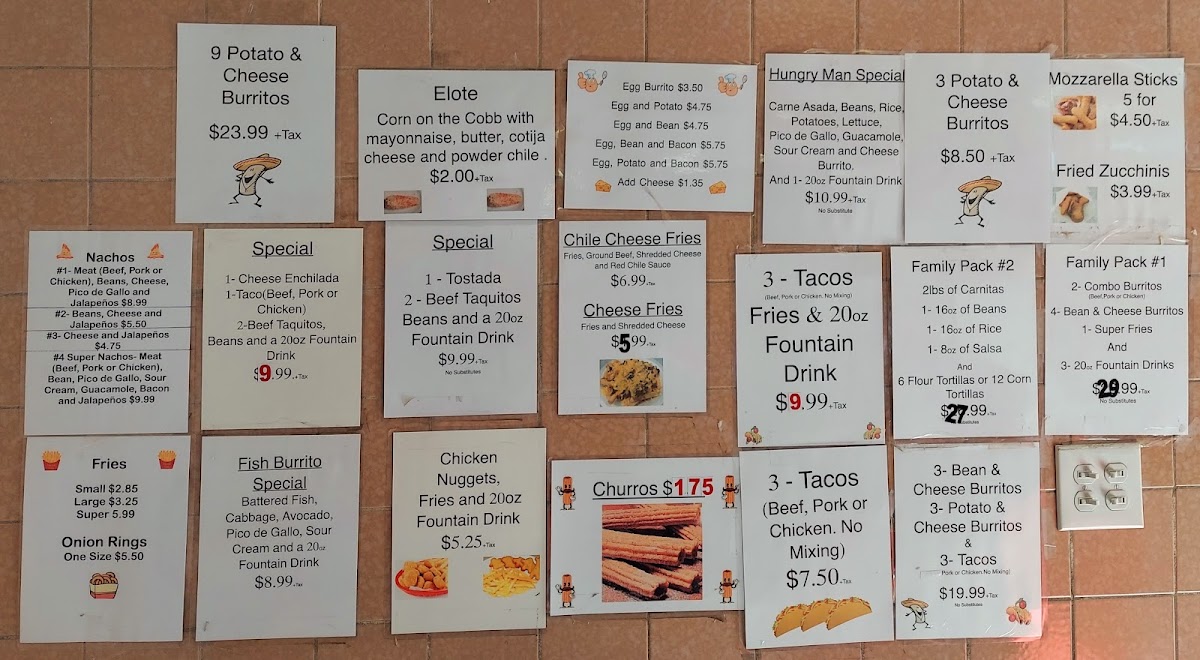 9 Potato &
Cheese
Burritos
$23.99 +Tax
Elote
Corn on the Cobb with
mayonnaise, butter, cotija
cheese and powder chile .
$2.00+Tax
Egg Burrito $3.50
Egg and Potato $4.75
Egg and Bean $4.75
Egg, Bean and Bacon $5.75
Egg, Potato and Bacon $5.75
Add Cheese $1.35
Hungry Man Special
Carne Asada, Beans, Rice,
Potatoes, Lettuce,
Pico de Gallo, Guacamole,
Sour Cream and Cheese
Burrito.
And 1- 20oz Fountain Drink
$10.99+Tax
No Substitute
3 Potato &
Cheese
Burritos
$8.50 +Tax
Mozzarella Sticks
5 for
$4.50+Tax
Fried Zucchinis
$3.99+Tax
Nachos
#1- Meat (Beef, Pork or
Chicken), Beans, Cheese,
Pico de Gallo and
Jalapeños $8.99
#2- Beans, Cheese and
Jalapeños $5.50
#3- Cheese and Jalapeños
$4.75
#4 Super Nachos- Meat
(Beef, Pork or Chicken),
Bean, Pico de Gallo, Sour
Cream, Guacamole, Bacon
and Jalapeños $9.99
Special
1- Cheese Enchilada
1-Taco(Beef, Pork or
Chicken)
2-Beef Taquitos,
Beans and a 20oz Fountain
Drink
$9.99.+Tax
Special
1 - Tostada
2 - Beef Taquitos
Beans and a 20oz
Fountain Drink
$9.99+Tax
No Substitutes
Chile Cheese Fries
Fries, Ground Beef, Shredded Cheese
and Red Chile Sauce
$6.99+Tax
Cheese Fries
Fries and Shredded Cheese
$5.99+Tax
3 - Tacos
(Beef, Pork or Chicken. No Mixing)
Fries & 20oz
Fountain
Drink
$9.99+Tax
Family Pack #2
2lbs of Carnitas
1- 16oz of Beans
1- 16oz of Rice
1- 8oz of Salsa
And
6 Flour Tortillas or 12 Corn
Tortillas
$27.99+Tax
Family Pack #1
2- Combo Burritos
(Beef,Pork or Chicken)
4- Bean & Cheese Burritos
1- Super Fries
And
3- 20oz Fountain Drinks
$29.99+Tax
No Substitutes
Fries
Small $2.85
Large $3.25
Super 5.99
Onion Rings
One Size $5.50
Fish Burrito
Special
Battered Fish,
Cabbage, Avocado,
Pico de Gallo, Sour
Cream and a 20oz
Fountain Drink
$8.99+Tax
Chicken
Nuggets,
Fries and 20oz
Fountain Drink
$5.25+Tax
Churros $1.75
3 - Tacos
(Beef, Pork or
Chicken. No
Mixing)
$7.50+Tax
3- Bean &
Cheese Burritos
3- Potato &
Cheese Burritos
&
3- Tacos
Pork or Chicken.No Mixing)
$19.99+Tax
No Substitutes